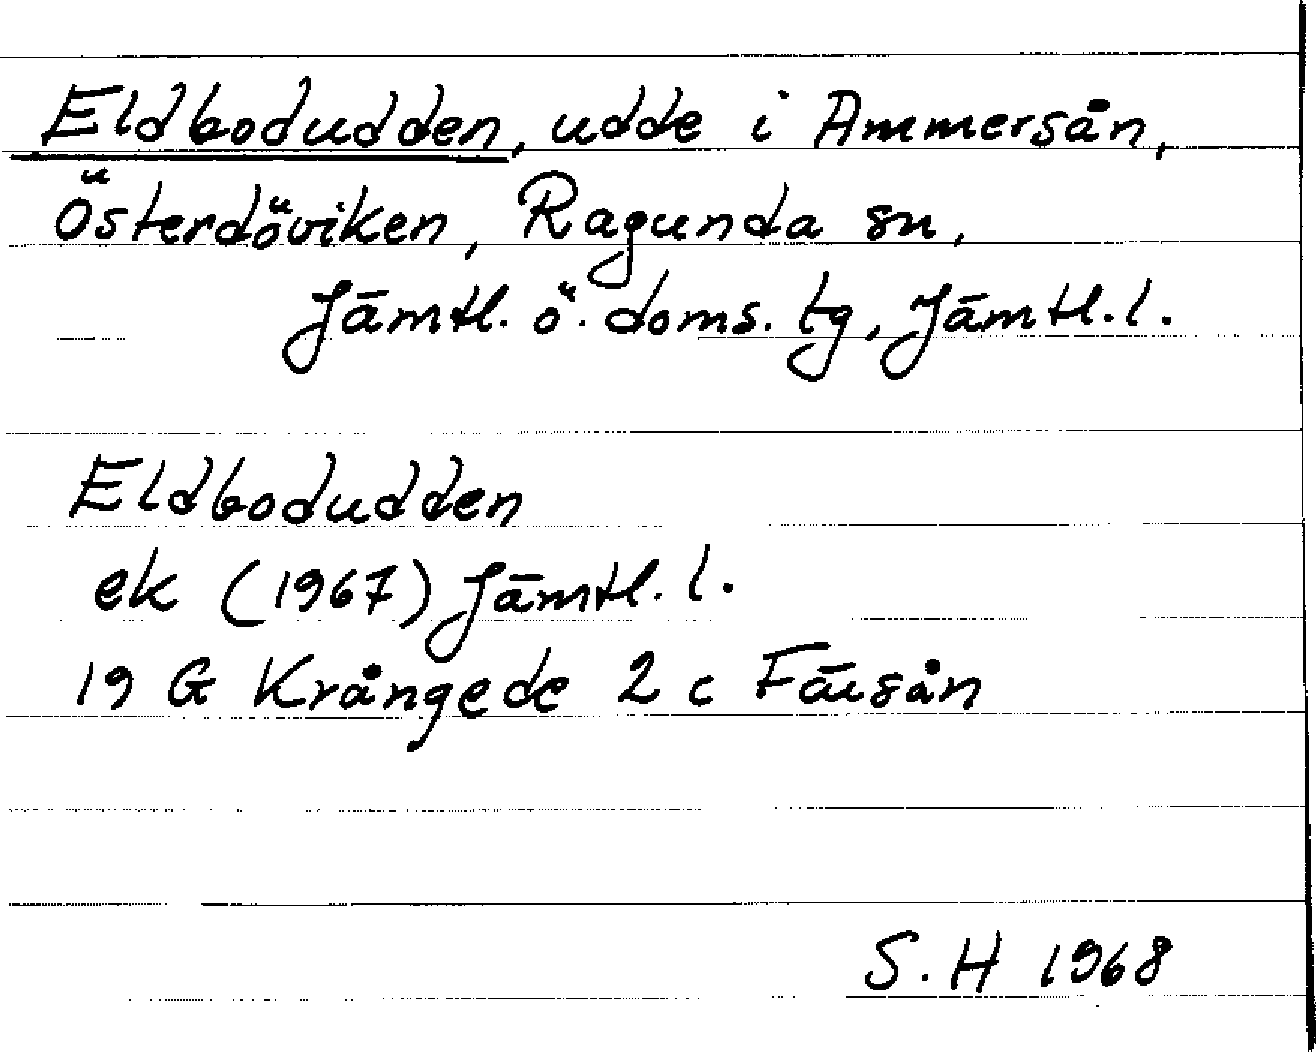 Eldbodudden, udde i Ammersån,
Österdöviken, Ragunda sn,
Jämtl. ö. doms. tg, Jämtl. l.
Eldbodudden
ek (1967) Jämtl. l.
19 G Krångede 2 c Fäusån
S. H 1968